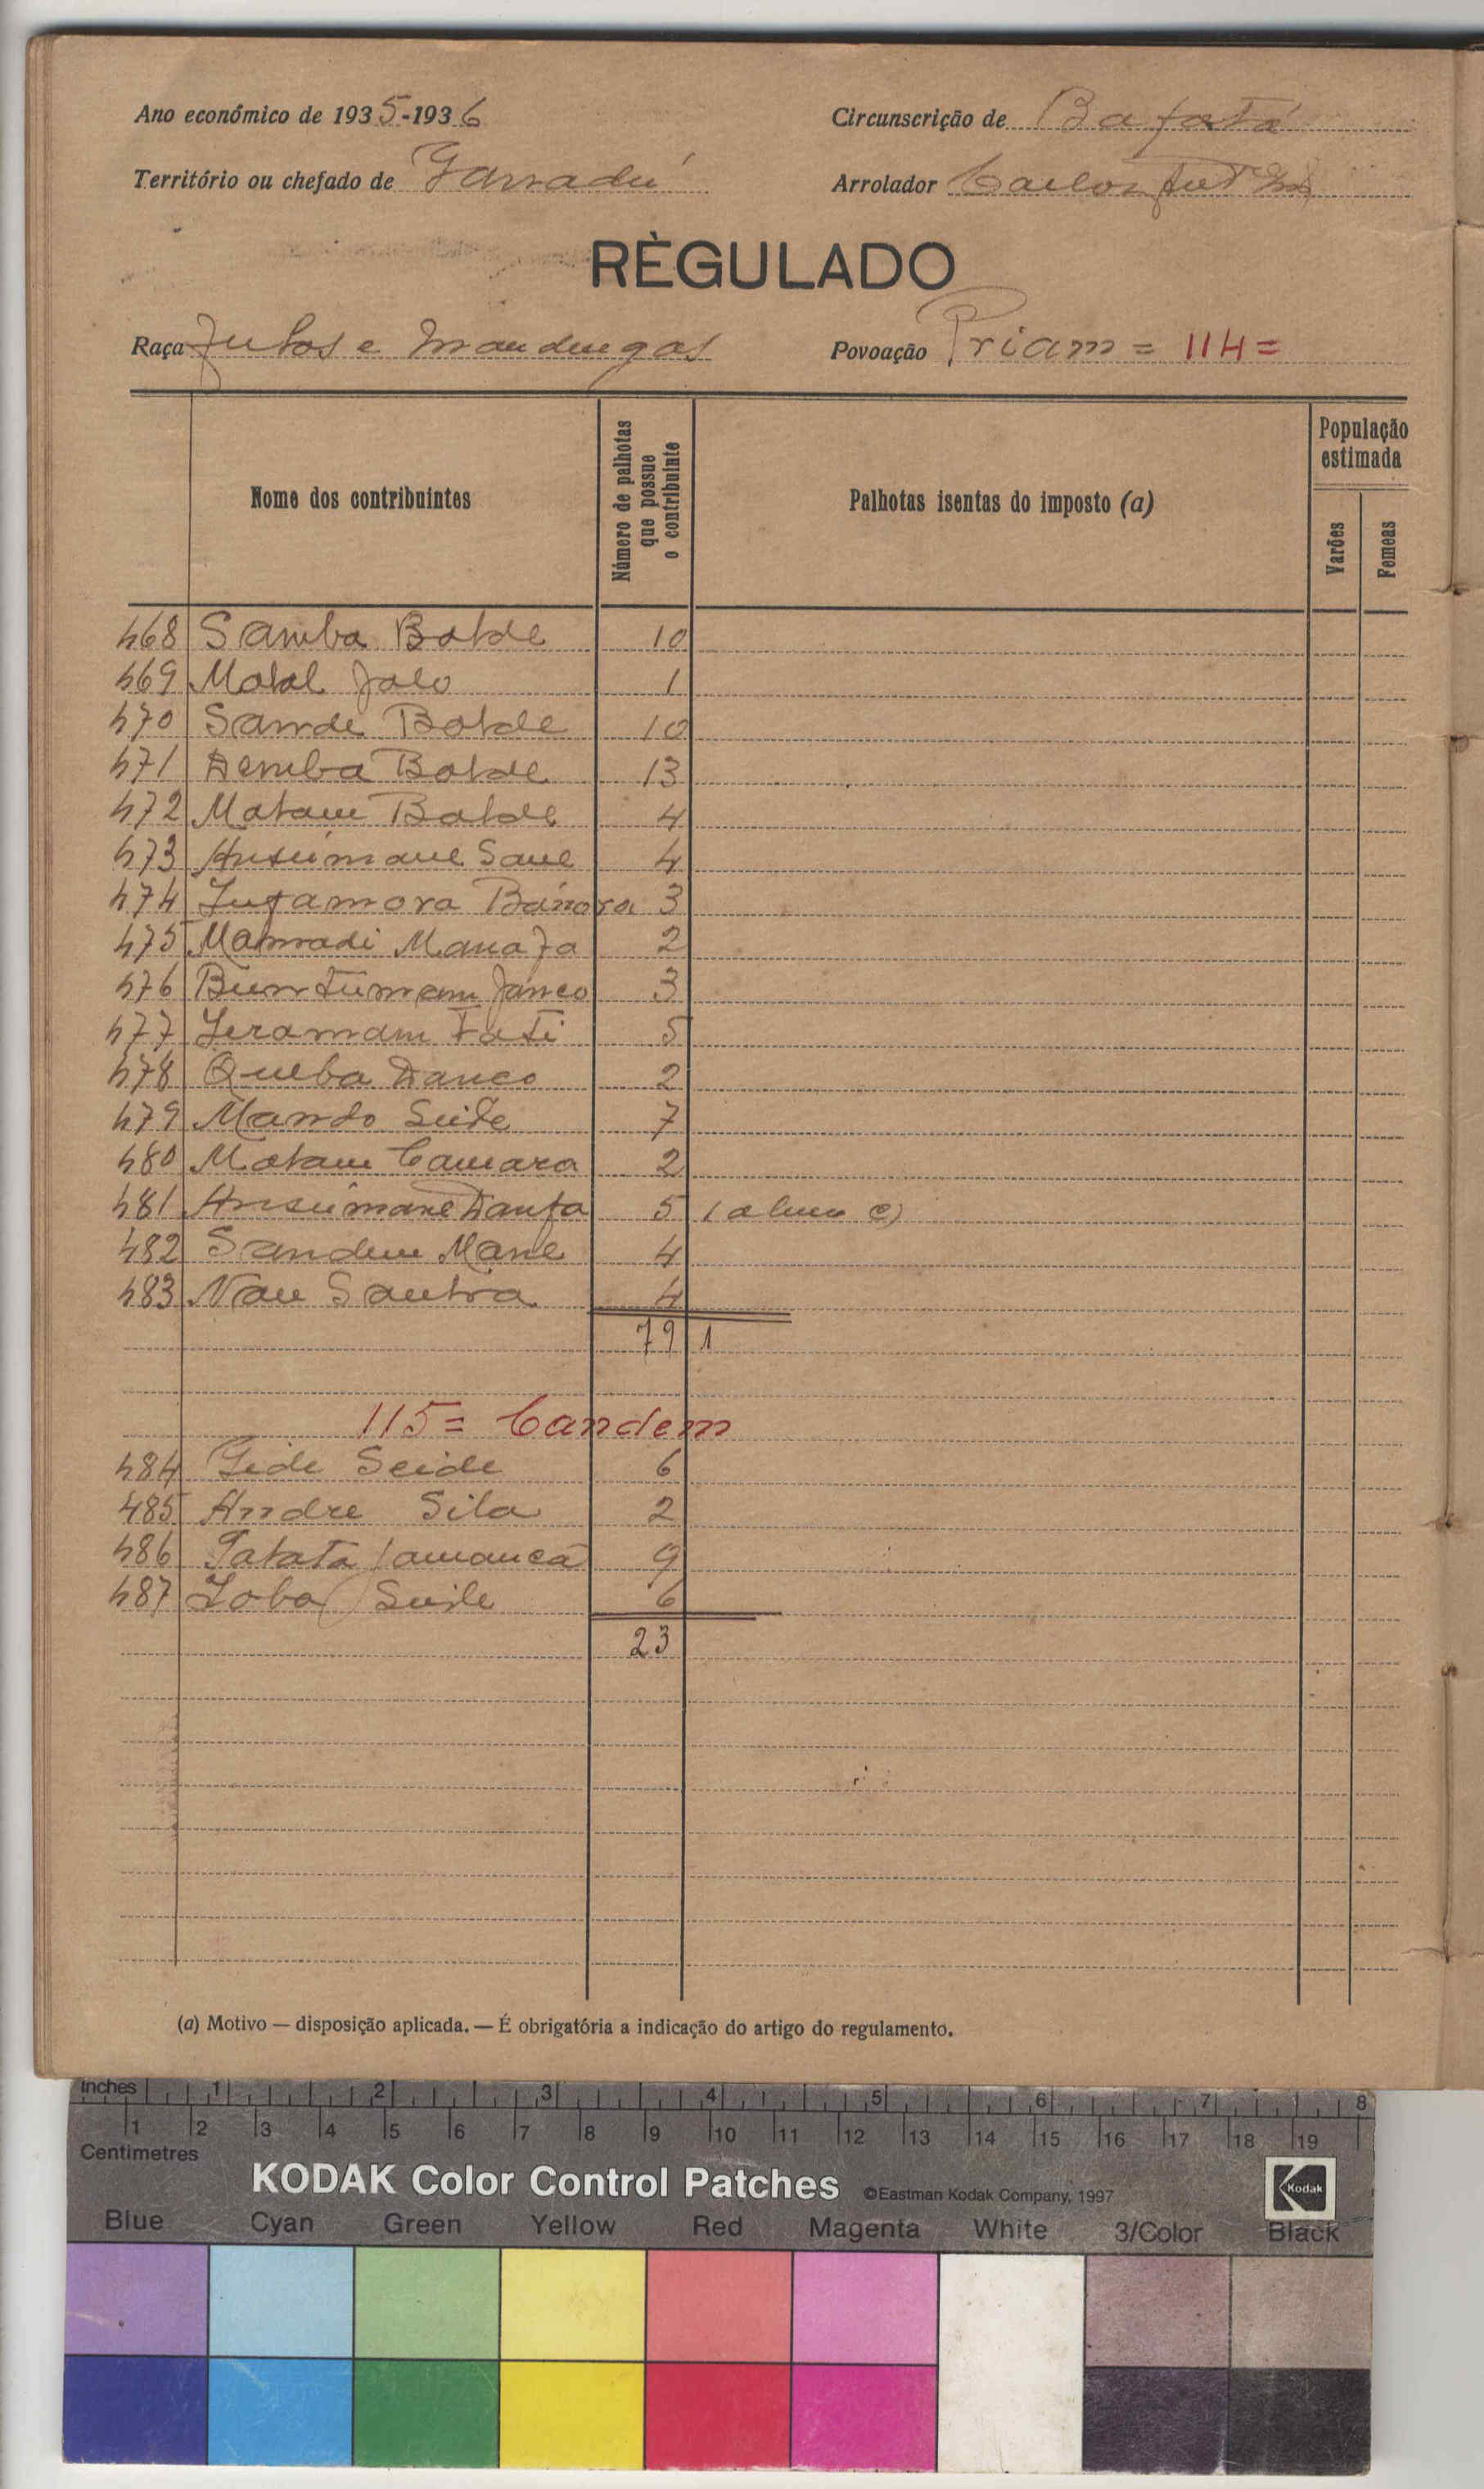 Ano económico de 1935-1936
Circunscrição de Bafatá
Território ou chefado de Ganadú
Arrolador Carlos
RÈGULADO
Raça Fulas e Mandingas
Povoação Priam = 114 =
Nome dos contribuintes
Número de palhotas que possue o contribuinte
Palhotas isentas do imposto (a)
População estimada
Varões
Femeas
468 Samba Balde 10
469 Matal Jalo 1
470 Samde Balde 10
471 Demba Balde 13
472 Malam Balde 4
473 Ansúmane Sane 4
474 Infamora Bánora 3
475 Mamadi Mana 2
476 Buntumam Janco 3
477 Jeramam Fati 5
478 Queba Danco 2
479 Mando Seide 7
480 Malam Camara 2
481 Ansúmane Danfa 5 1 c)
482 Sandem Mane 4
483 Nau 4
79 1
115= Candem
484 Gide Seide 6
485 Andre Sila 2
486 Jamanca 9
487 Seide 6
23
(a) Motivo — disposição aplicada. — É obrigatória a indicação do artigo do regulamento.
Inches 1 2 3 4 5 6 7 8
1 2 3 4 5 6 7 8 9 10 11 12 13 14 15 16 17 18 19
Centimetres
KODAK Color Control Patches ©Eastman Kodak Company, 1997 Kodak
Blue Cyan Green Yellow Red Magenta White 3/Color Black